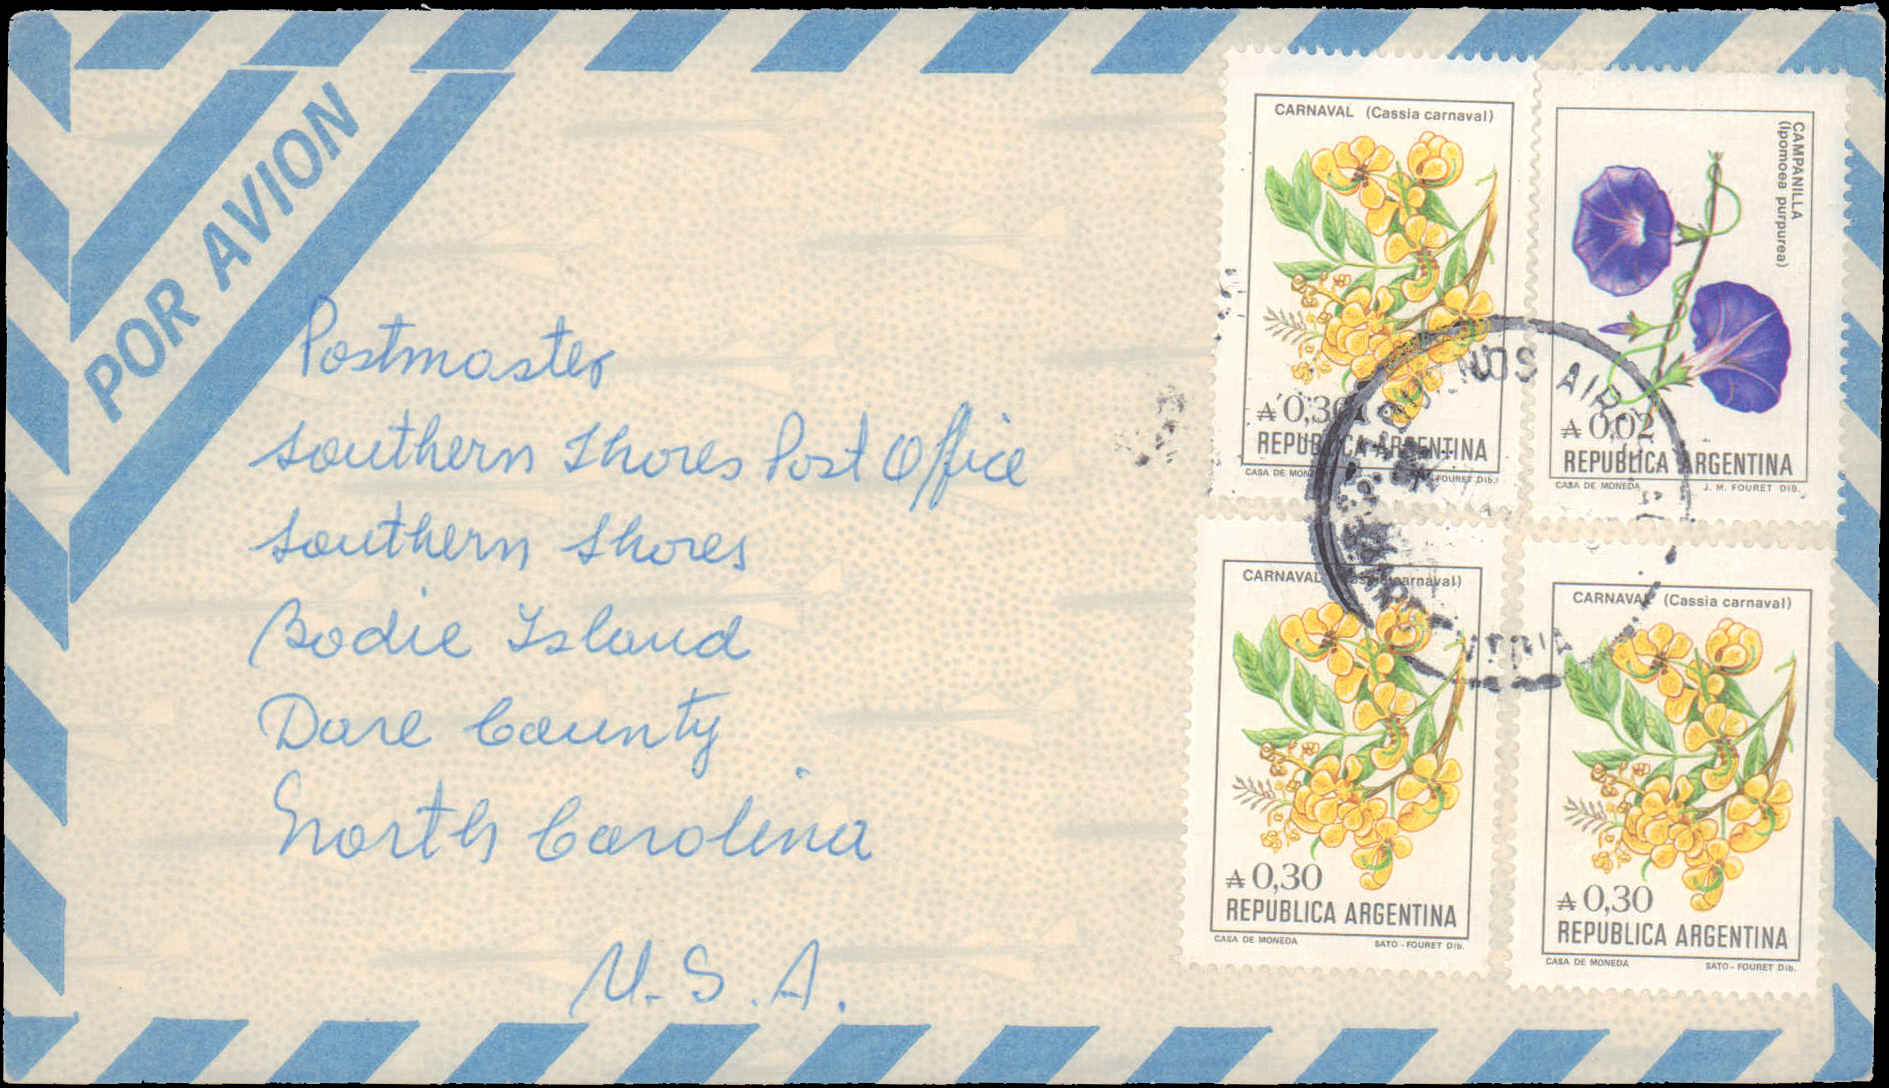 POR AVION
Postmaster
Southern Shores Post Office
Southern Shores
Bodie Island
Dare County
North Carolina
U.S.A.
CARNAVAL (Cassia carnaval)
₳ 0,30
REPUBLICA ARGENTINA
CASA DE MONEDA FOURET Dib.
CAMPANILLA
(Ipomoea purpurea)
₳ 0,02
REPUBLICA ARGENTINA
CASA DE MONEDA J. M. FOURET DIB.
CARNAVAL (Cassia carnaval)
₳ 0,30
REPUBLICA ARGENTINA
CASA DE MONEDA SATO - FOURET Dib.
CARNAVAL (Cassia carnaval)
₳ 0,30
REPUBLICA ARGENTINA
CASA DE MONEDA SATO - FOURET Dib.